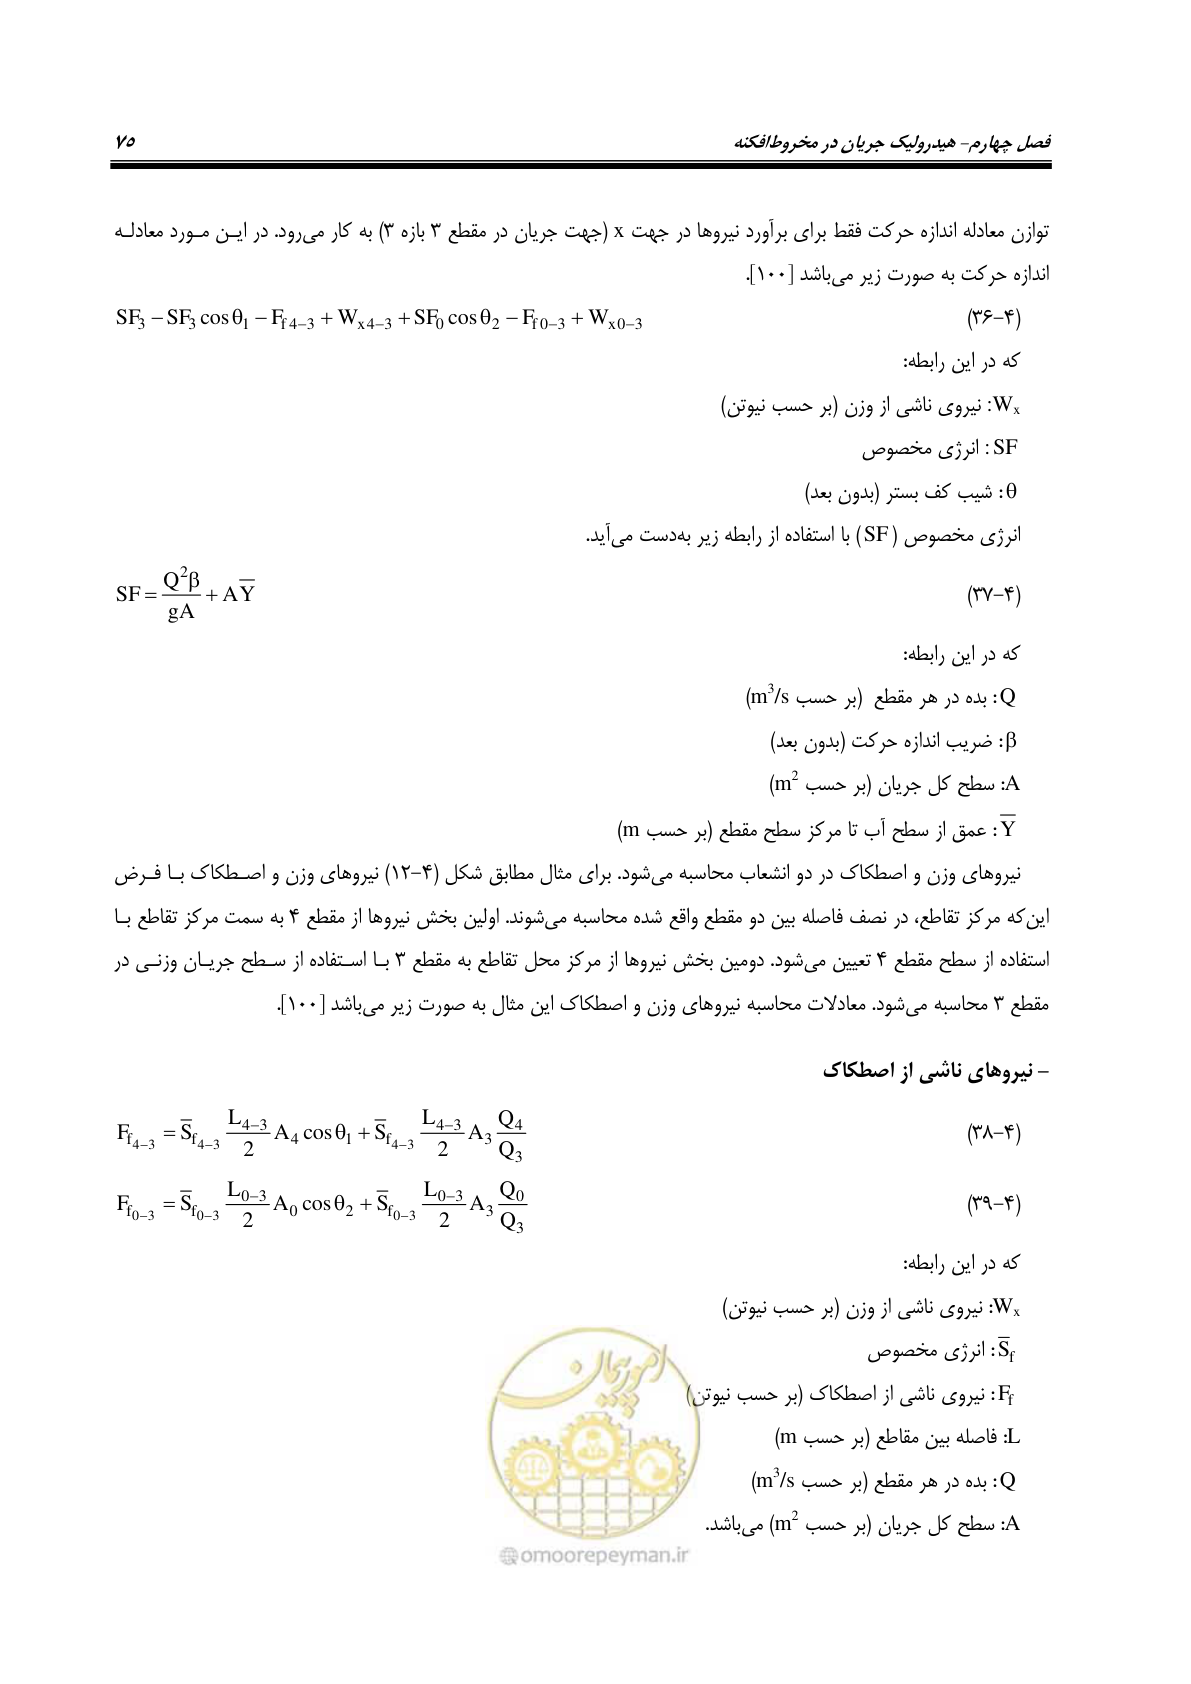 فصل چهارم- هیدرولیک جریان در مخروط‌افکنه ۷۵
توازن معادله اندازه حرکت فقط برای برآورد نیروها در جهت x (جهت جریان در مقطع ۳ بازه ۳) به کار می‌رود. در ایـن مـورد معادلـه
اندازه حرکت به صورت زیر می‌باشد [۱۰۰].
SF₃ – SF₃ cos θ₁ – F_f4–3 + W_x4–3 + SF₀ cos θ₂ – F_f0–3 + W_x0–3 (۴-۳۶)
که در این رابطه:
Wₓ: نیروی ناشی از وزن (بر حسب نیوتن)
SF : انرژی مخصوص
θ : شیب کف بستر (بدون بعد)
انرژی مخصوص (SF) با استفاده از رابطه زیر به‌دست می‌آید.
SF = Q²β/gA + AY̅ (۴-۳۷)
که در این رابطه:
Q : بده در هر مقطع (بر حسب m³/s)
β : ضریب اندازه حرکت (بدون بعد)
A: سطح کل جریان (بر حسب m²)
Y̅ : عمق از سطح آب تا مرکز سطح مقطع (بر حسب m)
نیروهای وزن و اصطکاک در دو انشعاب محاسبه می‌شود. برای مثال مطابق شکل (۴-۱۲) نیروهای وزن و اصـطکاک بـا فـرض
این‌که مرکز تقاطع، در نصف فاصله بین دو مقطع واقع شده محاسبه می‌شوند. اولین بخش نیروها از مقطع ۴ به سمت مرکز تقاطع بـا
استفاده از سطح مقطع ۴ تعیین می‌شود. دومین بخش نیروها از مرکز محل تقاطع به مقطع ۳ بـا اسـتفاده از سـطح جریـان وزنـی در
مقطع ۳ محاسبه می‌شود. معادلات محاسبه نیروهای وزن و اصطکاک این مثال به صورت زیر می‌باشد [۱۰۰].
– نیروهای ناشی از اصطکاک
F_f4–3 = S̅_f4–3 L₄₋₃/2 A₄ cos θ₁ + S̅_f4–3 L₄₋₃/2 A₃ Q₄/Q₃ (۴-۳۸)
F_f0–3 = S̅_f0–3 L₀₋₃/2 A₀ cos θ₂ + S̅_f0–3 L₀₋₃/2 A₃ Q₀/Q₃ (۴-۳۹)
که در این رابطه:
Wₓ: نیروی ناشی از وزن (بر حسب نیوتن)
S̅_f : انرژی مخصوص
F_f : نیروی ناشی از اصطکاک (بر حسب نیوتن)
L: فاصله بین مقاطع (بر حسب m)
Q : بده در هر مقطع (بر حسب m³/s)
A: سطح کل جریان (بر حسب m²) می‌باشد.
امور پیمان
@omoorepeyman.ir